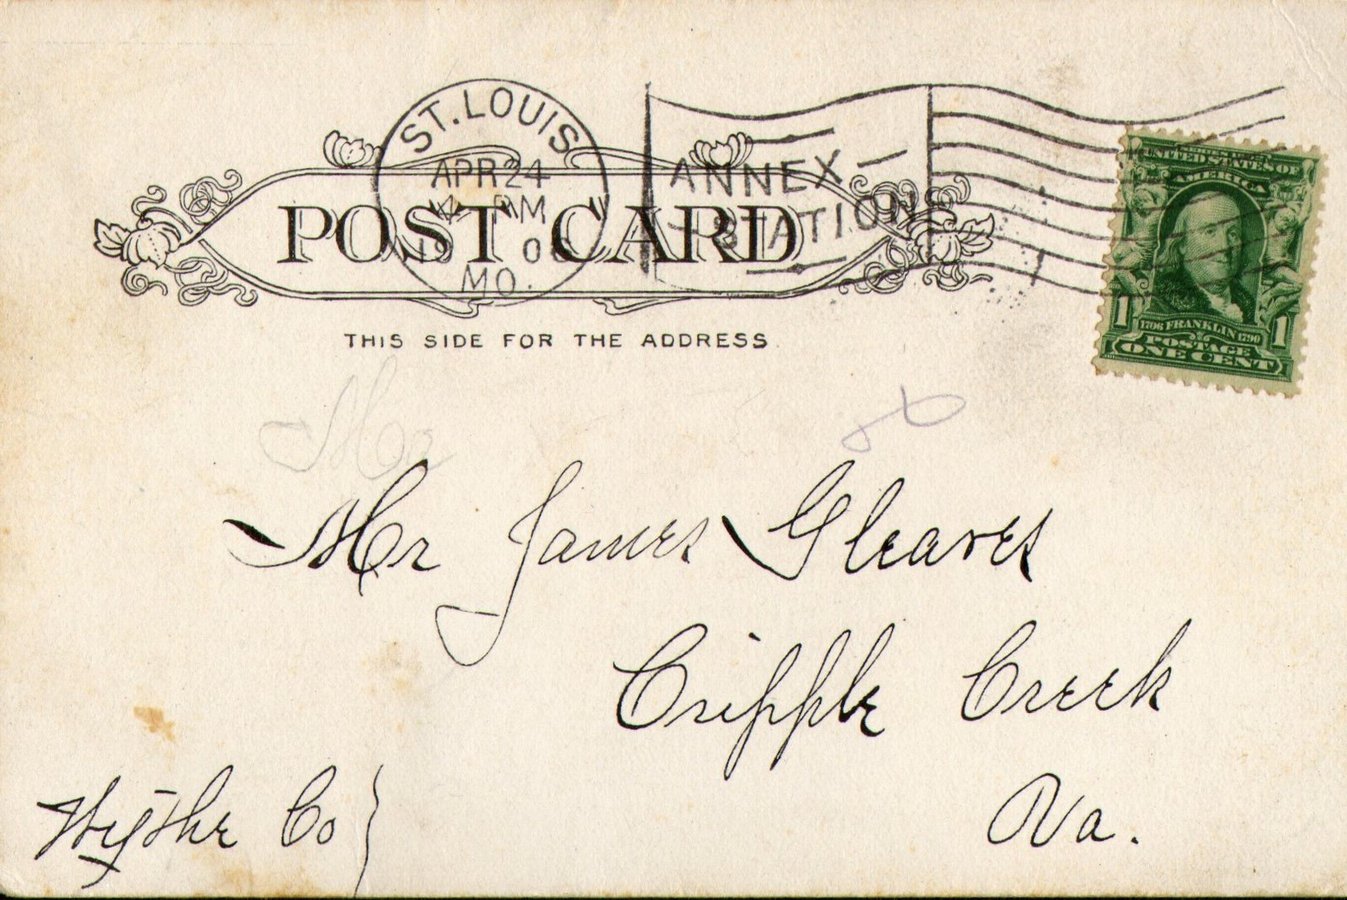 ST. LOUIS
APR 24
MO.
ANNEX
STATION
POST CARD
THIS SIDE FOR THE ADDRESS.
UNITED STATES OF
AMERICA
1 1
1706 FRANKLIN 1790
POSTAGE
ONE CENT
Mr
Mr James Gleaves
Cripple Creek
Va.
Wythe Co